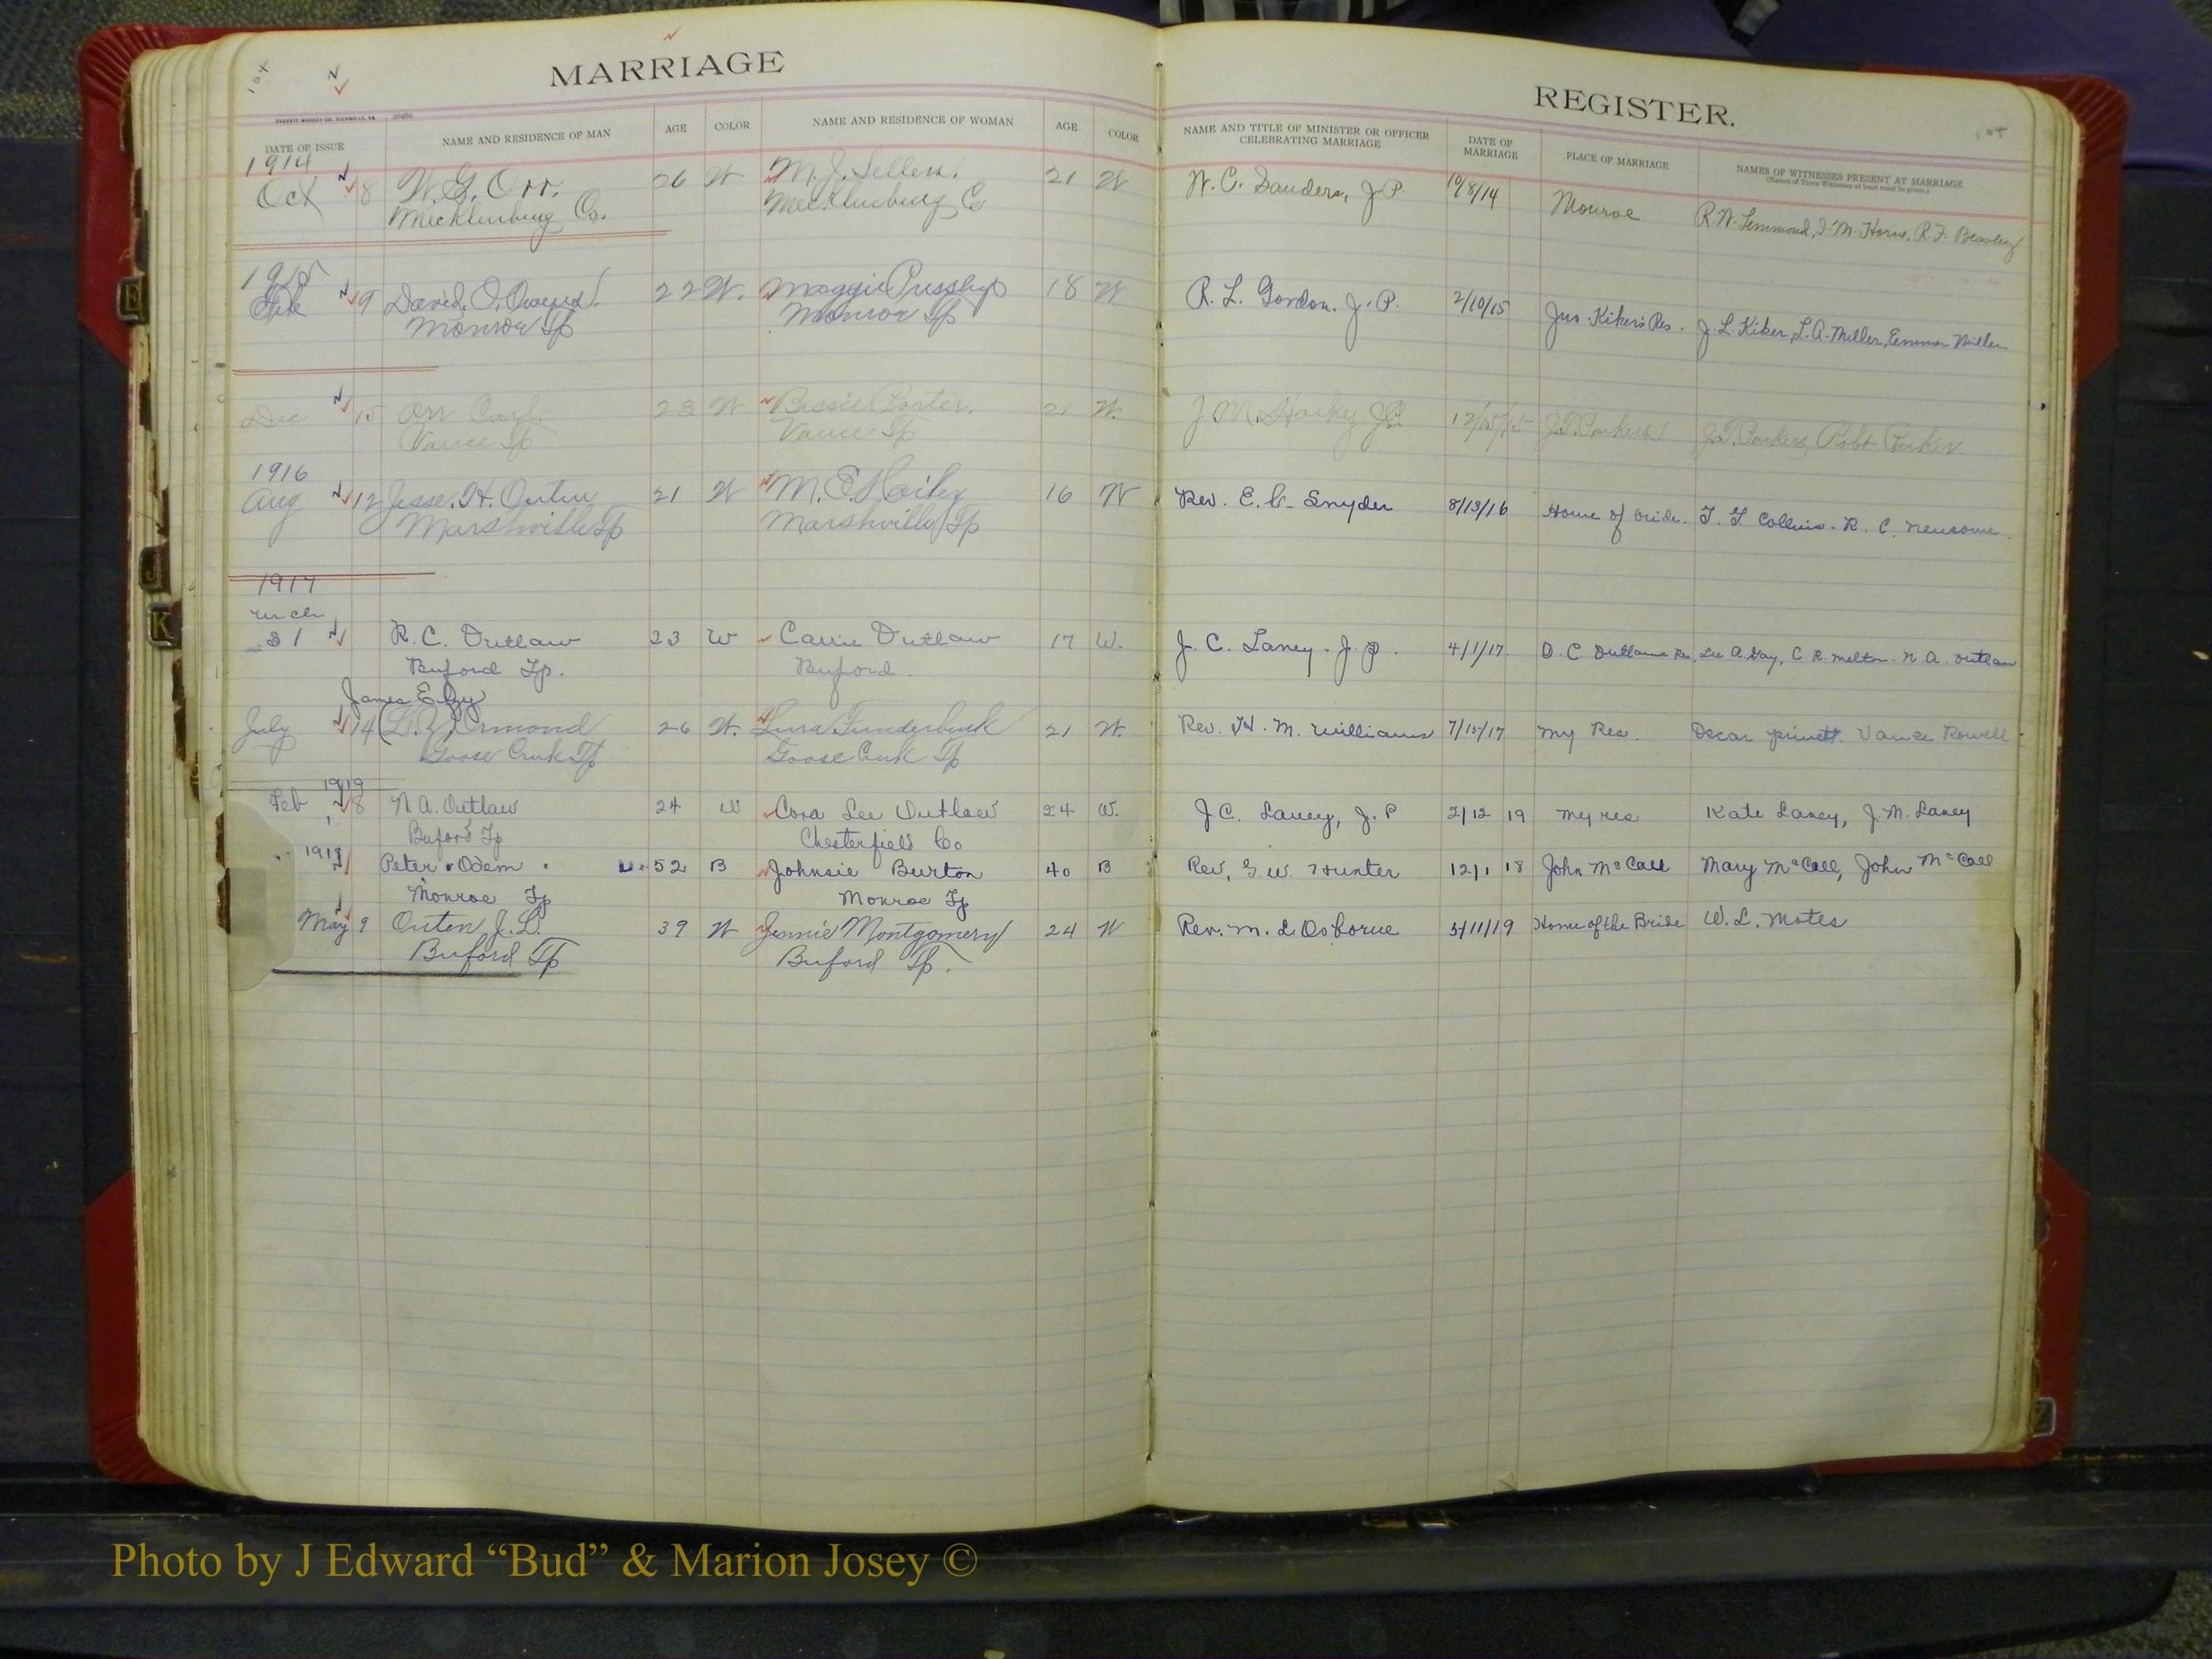 MARRIAGE
REGISTER.
EVERETT WADDEY CO. RICHMOND, VA.
DATE OF ISSUE NAME AND RESIDENCE OF MAN AGE COLOR NAME AND RESIDENCE OF WOMAN AGE COLOR NAME AND TITLE OF MINISTER OR OFFICER CELEBRATING MARRIAGE DATE OF MARRIAGE PLACE OF MARRIAGE NAMES OF WITNESSES PRESENT AT MARRIAGE
(Names of Three Witnesses at least must be given.)
1914
Oct 8 W. G. Orr. 26 W M. J. Sellers. 21 W W. C. Sanders, J.P. 10/8/14 Monroe R. W. Lemmond, J. M. Horne, R. F. Beasley
Mecklenburg Co. Mecklenburg Co
1915
Feb 9 David O. 22 W. Maggie Pressley 18 W R. L. Gordon. J. P. 2/10/15 Jno. Kiker's Res. J. L. Kiker, L. A. Miller, Emma Miller
Monroe Tp Monroe Tp
Dec 15 Orr 23 W Bessie Porter. 21 W. J M J.P. 12/15/15 Robt
Vance Tp Vance Tp
1916
Aug 12 Jesse. H. Outen 21 W M. E. Hailey 16 W Rev. E. C. Snyder 8/13/16 Home of bride. T. F Collins - R. C. Newsome.
Marshville Tp Marshville Tp
1917
March
31 R. C. Outlaw 23 W Carrie Outlaw 17 W. J. C. Laney. J. P. 4/1/17 D. C. Outlaws Res Lee A. Gay, C. R. Melton. N. A. Outlaw
Buford Tp. Buford.
James Elzy
July 14 Ormond 26 W. Lura Funderburk 21 W. Rev. H. M. Williams 7/15/17 My Res. Oscar Privett. Vance Rowell
Goose Creek Tp Goose Creek Tp
1919
Feb 8 N A. Outlaw 24 W Cora Lee Outlaw 24 W. J. C. Laney, J. P 2/12 19 my res Kate Laney, J. M. Laney
Buford Tp Chesterfield Co
1918
Peter Odem 52 B Johnsie Burton 40 B Rev, G. W. Hunter 12/1 18 John McCall Mary McCall, John McCall
Monroe Tp Monroe Tp
May 9 Outen, J. L. 39 W Jennie Montgomery 24 W Rev. M. L Osborne 5/11/19 Home of the Bride W. L. Mates
Buford Tp Buford Tp.
K
Photo by J Edward “Bud” & Marion Josey ©